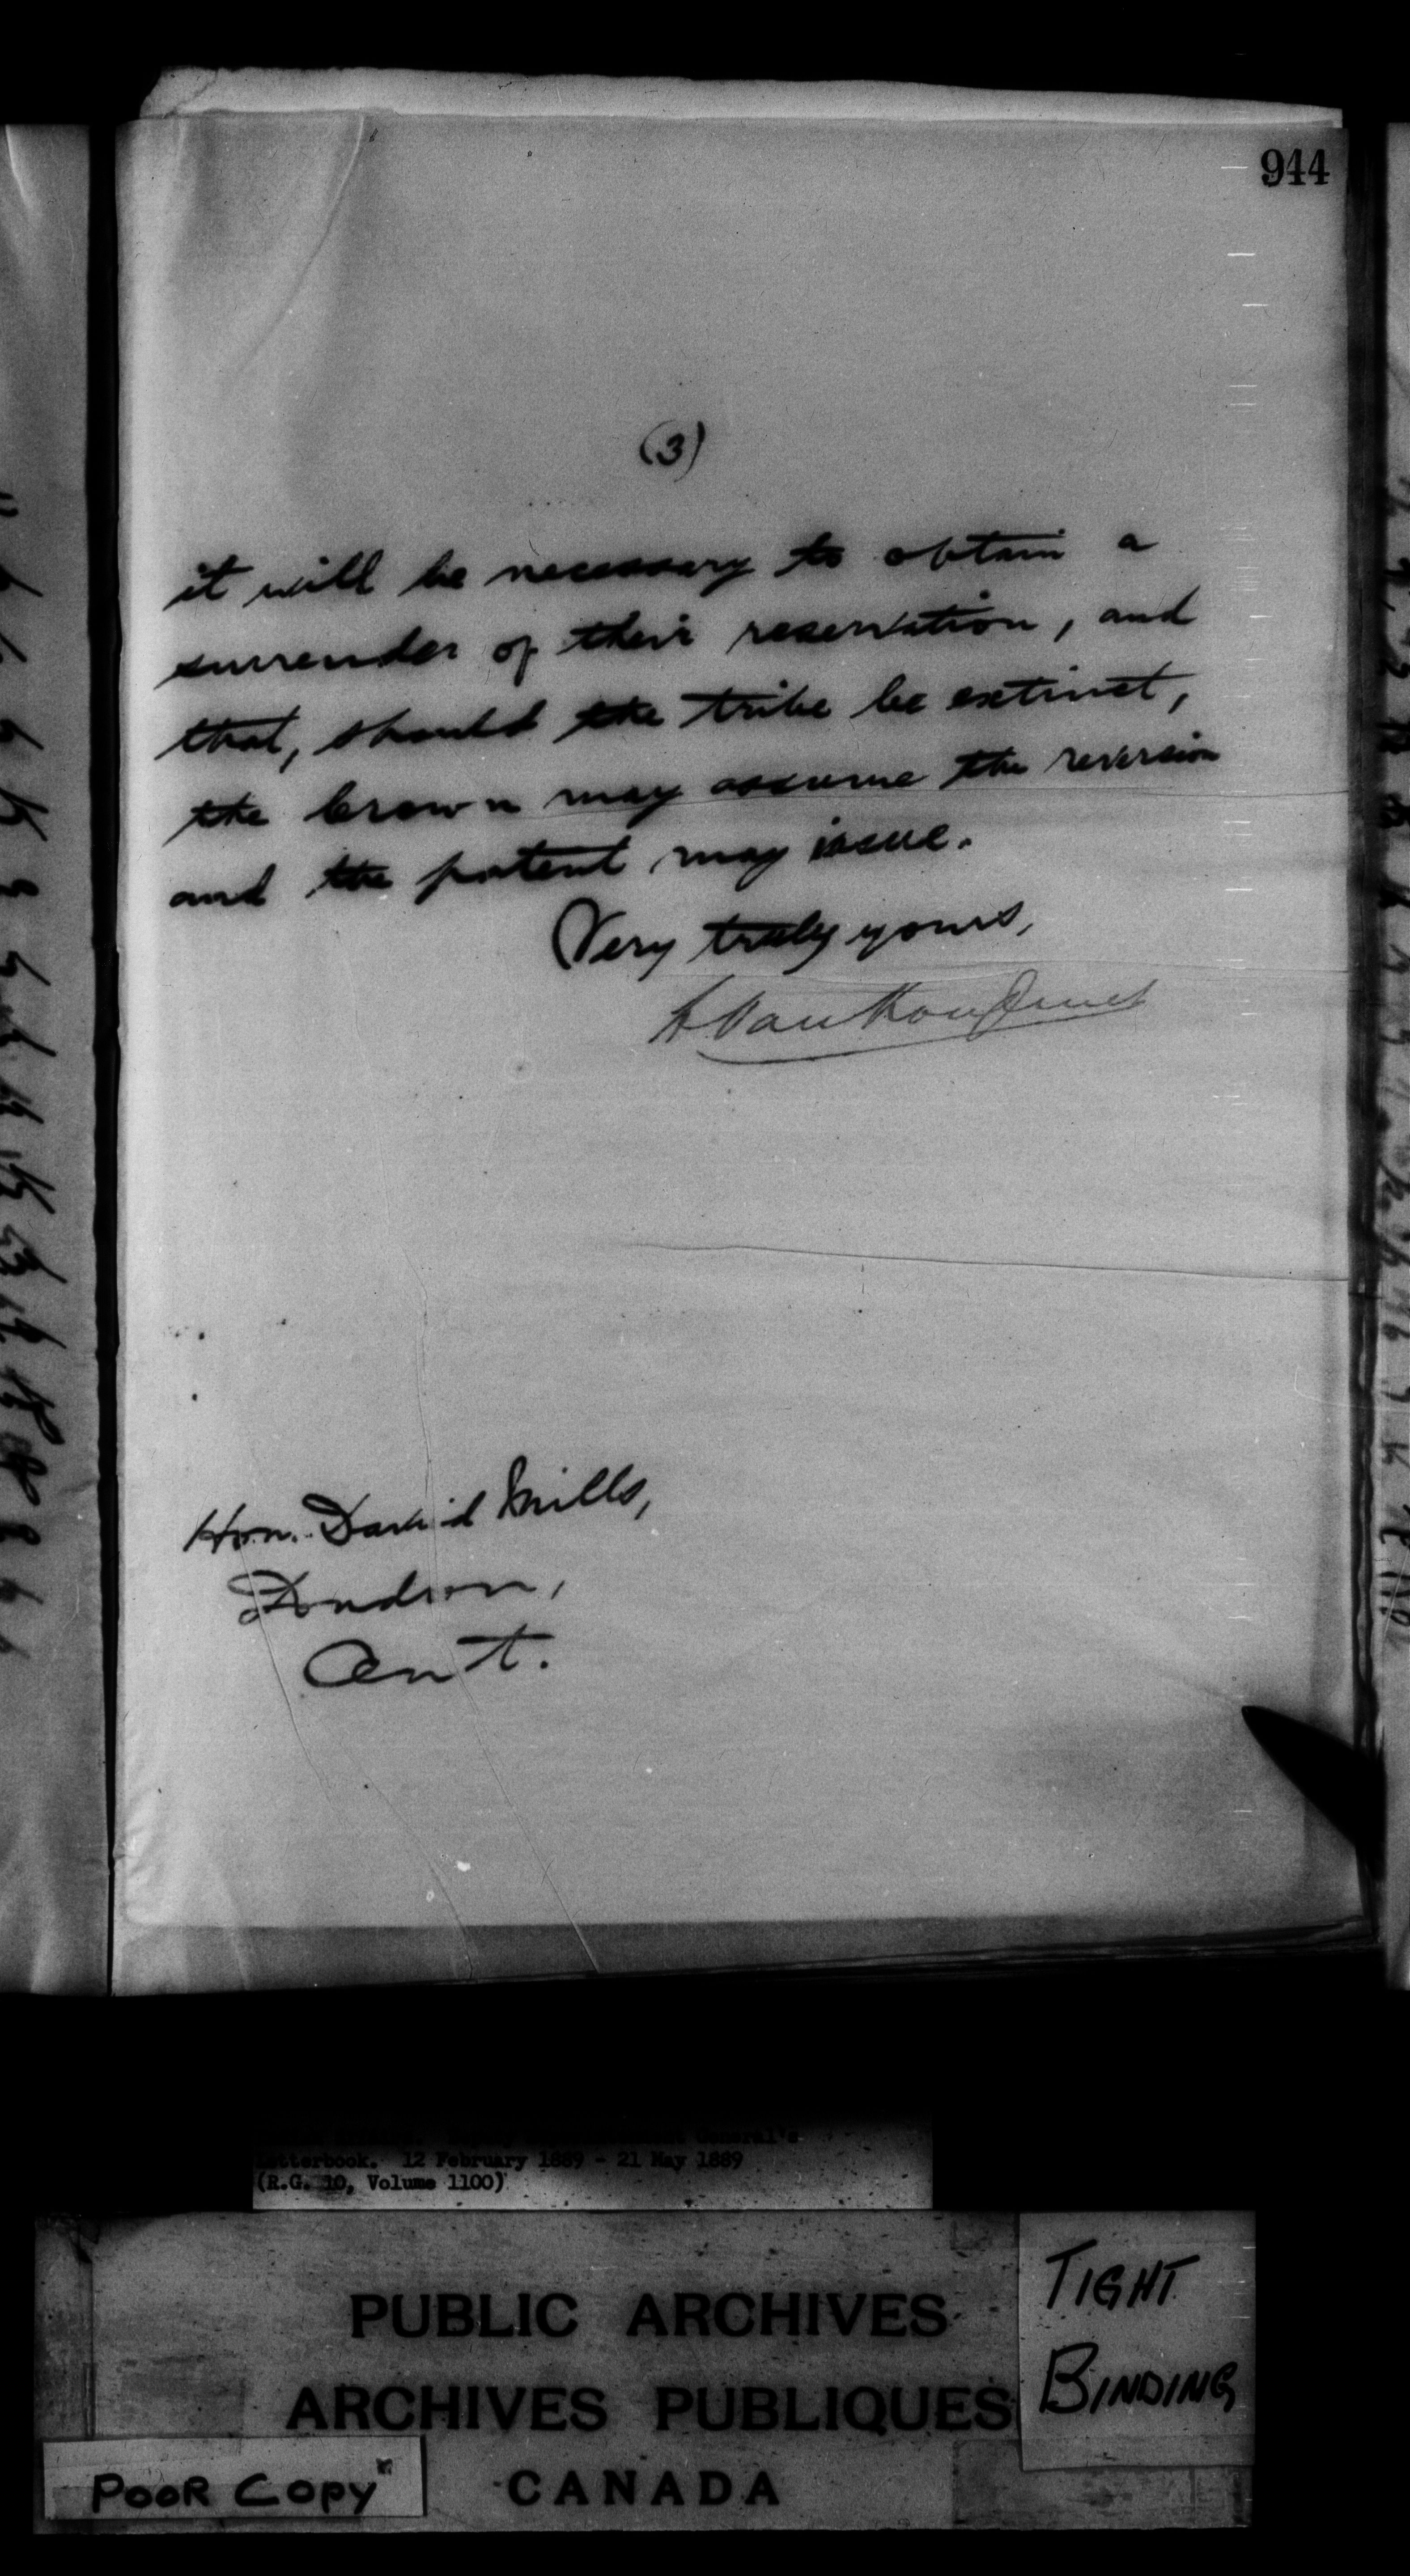 944
(3)
it will be necessary to obtain a
surrender of their reservation, and
that, should the tribe be extinct,
the Crown may assume the reversion
and the patent may issue.
Very truly yours,
L VanKoughnet
Hon. David Mills,
London,
Ont.
General's
Letterbook. 12 February 1889 - 21 May 1889
(R.G. 10, Volume 1100)
PUBLIC ARCHIVES
ARCHIVES PUBLIQUES
CANADA
TIGHT
BINDING
POOR COPY